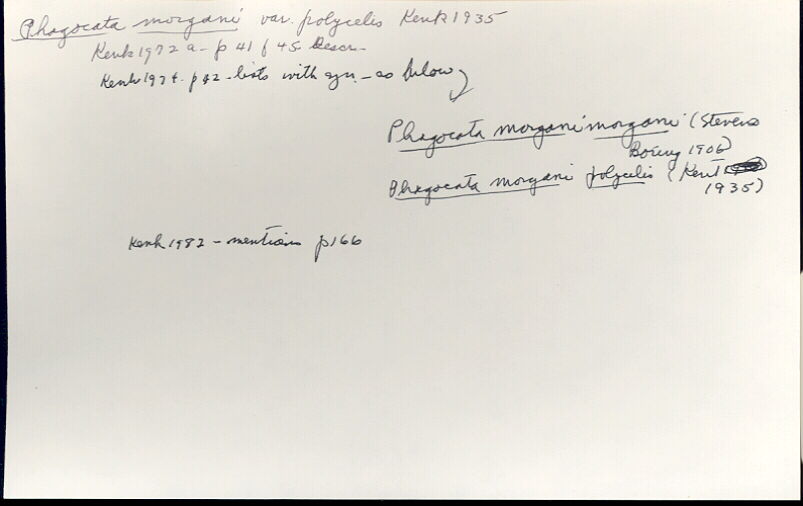 Phagocata morgani var. polycelis Kenk 1935
Kenk 1972 a - p 41 f 45 Descr -
Kenk 1974. p 42 - lists with syn. - as below
Phagocata morgani morgani (Stevens
Boring 1906)
Phagocata morgani polycelis (Kenk
1935)
Kenk 1982 - mentions p166